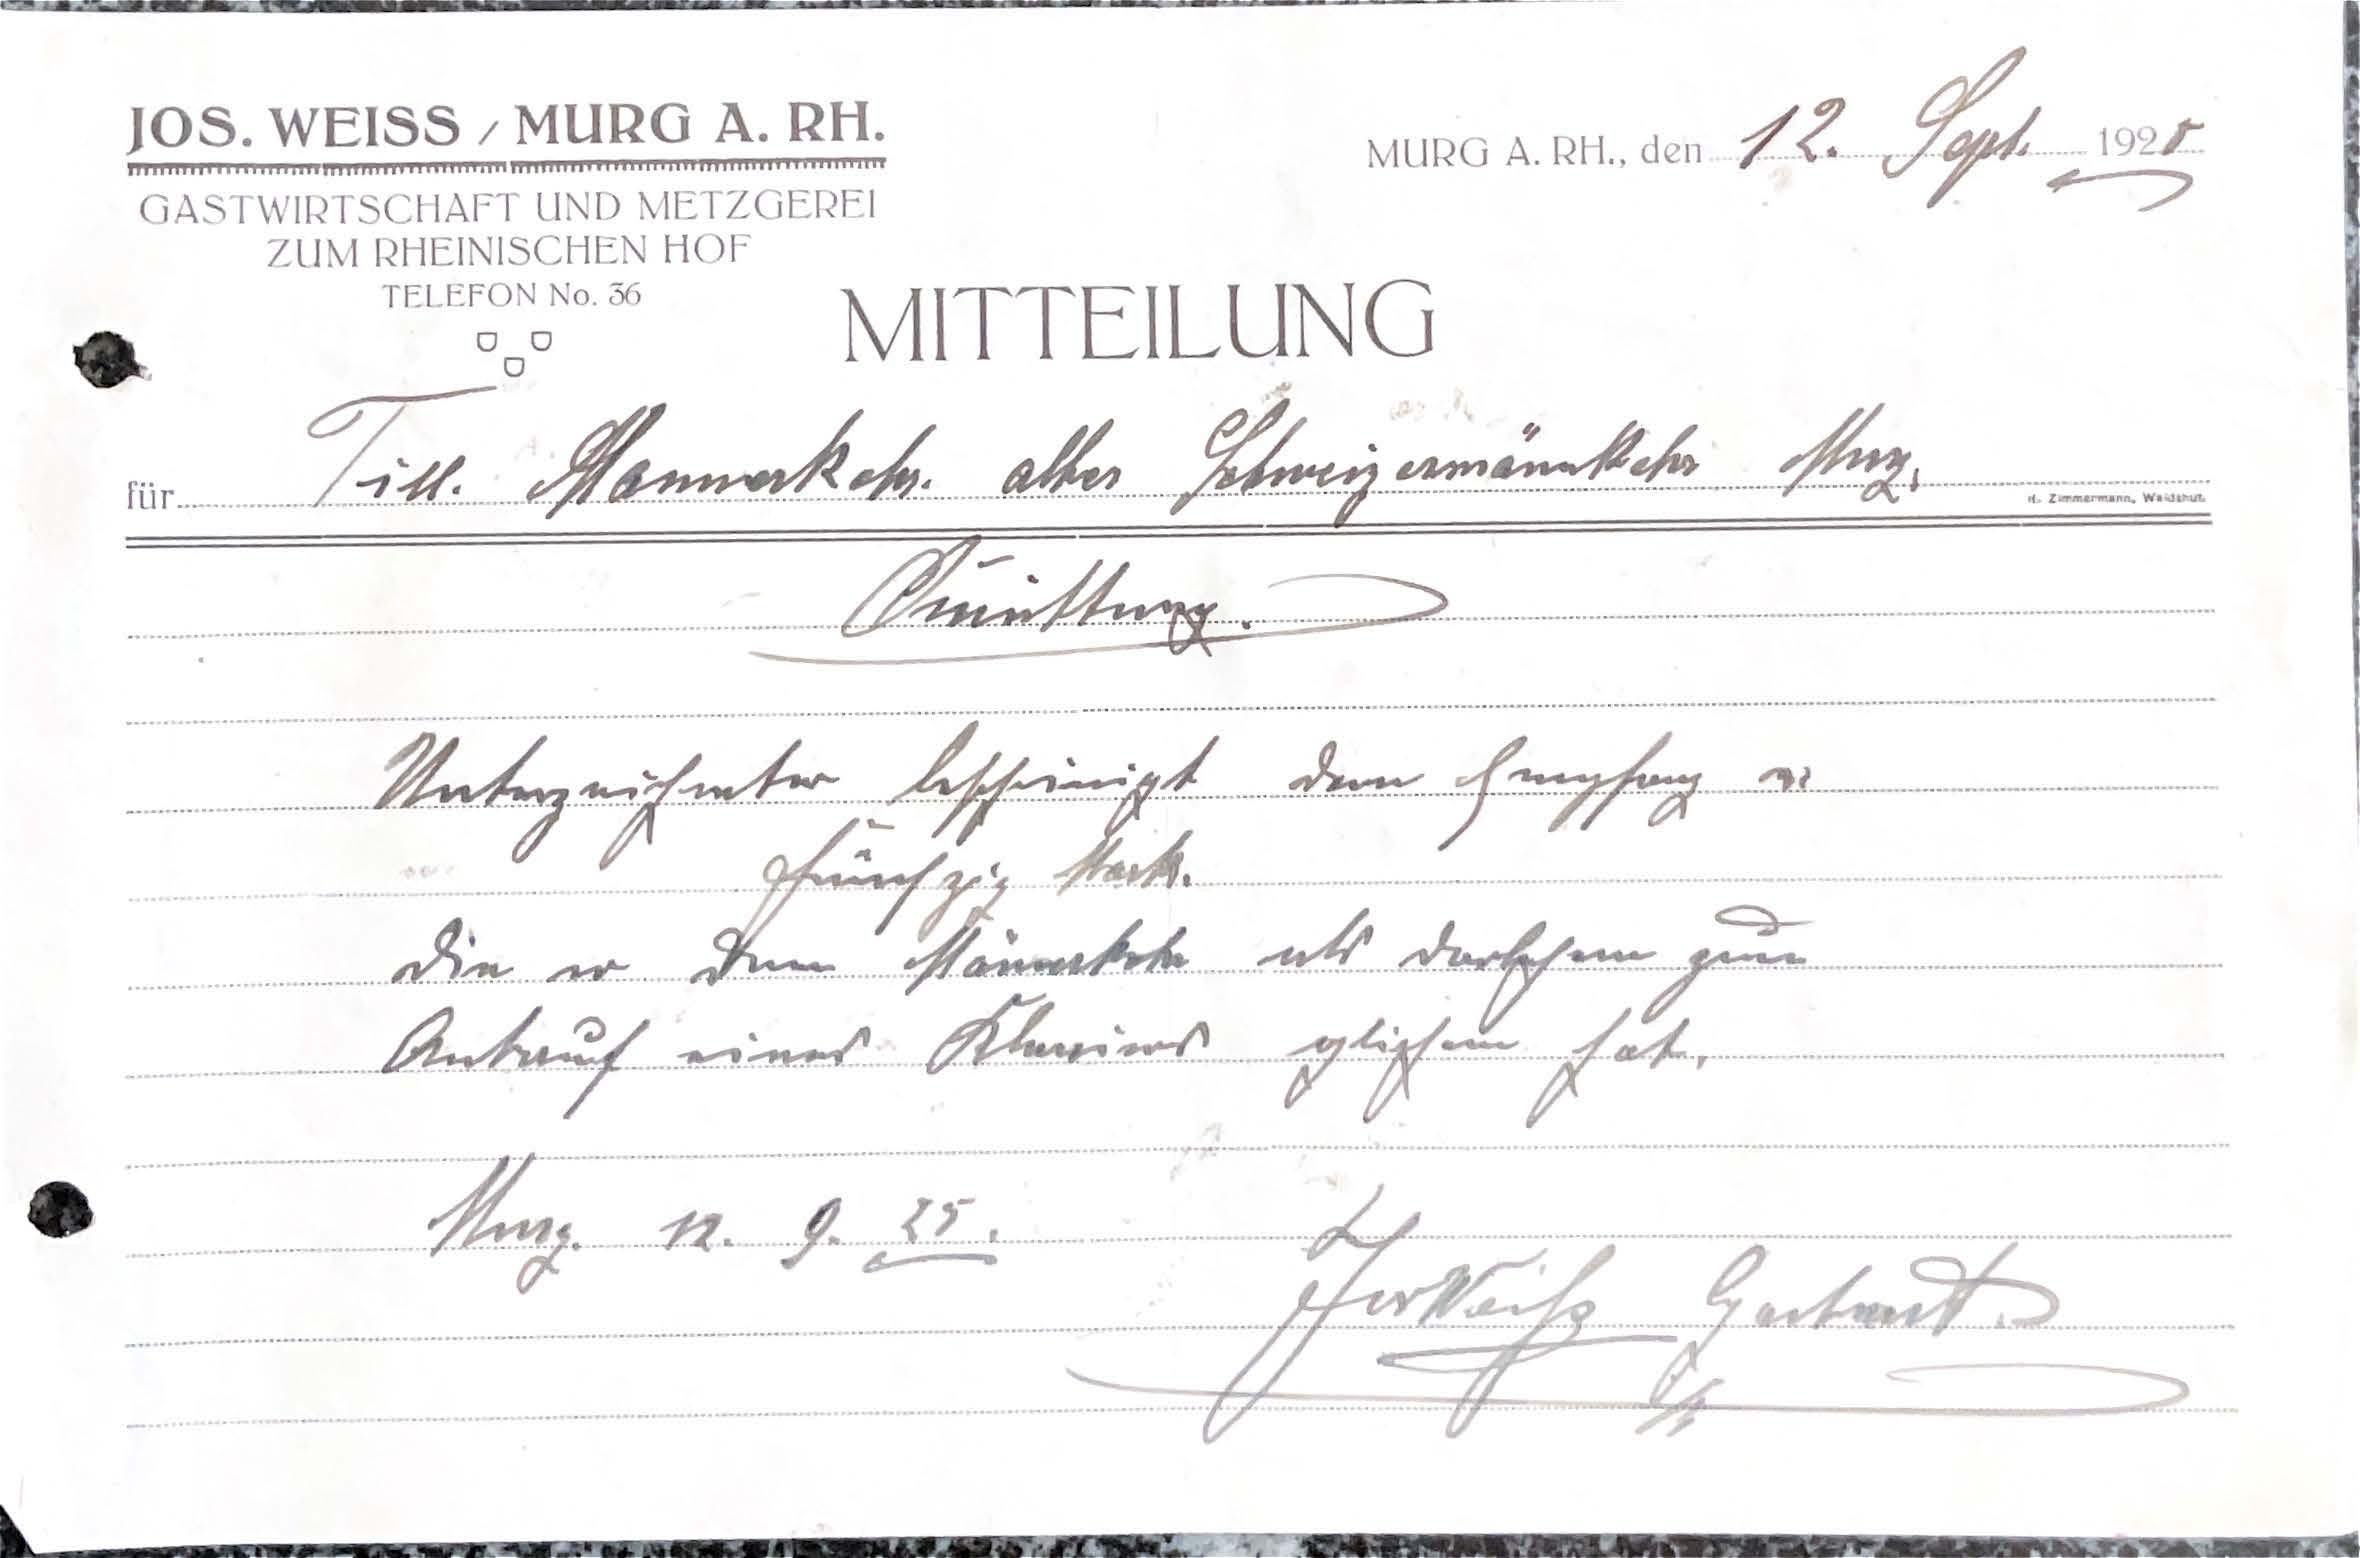 JOS. WEISS / MURG A. RH.
GASTWIRTSCHAFT UND METZGEREI
ZUM RHEINISCHEN HOF
TELEFON No. 36
MURG A. RH., den 12. Sept. 1925
MITTEILUNG
für Titl. Männerchor alter Murg.
H. Zimmermann, Waldshut.
Quittung.
Unterzeichneter bescheinigt den Empfang v.
fünfzig Mark.
die er dem Männerchor als Darlehen zum
Ankauf eines Klaviers geliehen hat.
Murg. 12. 9. 25.
Jos Weiß